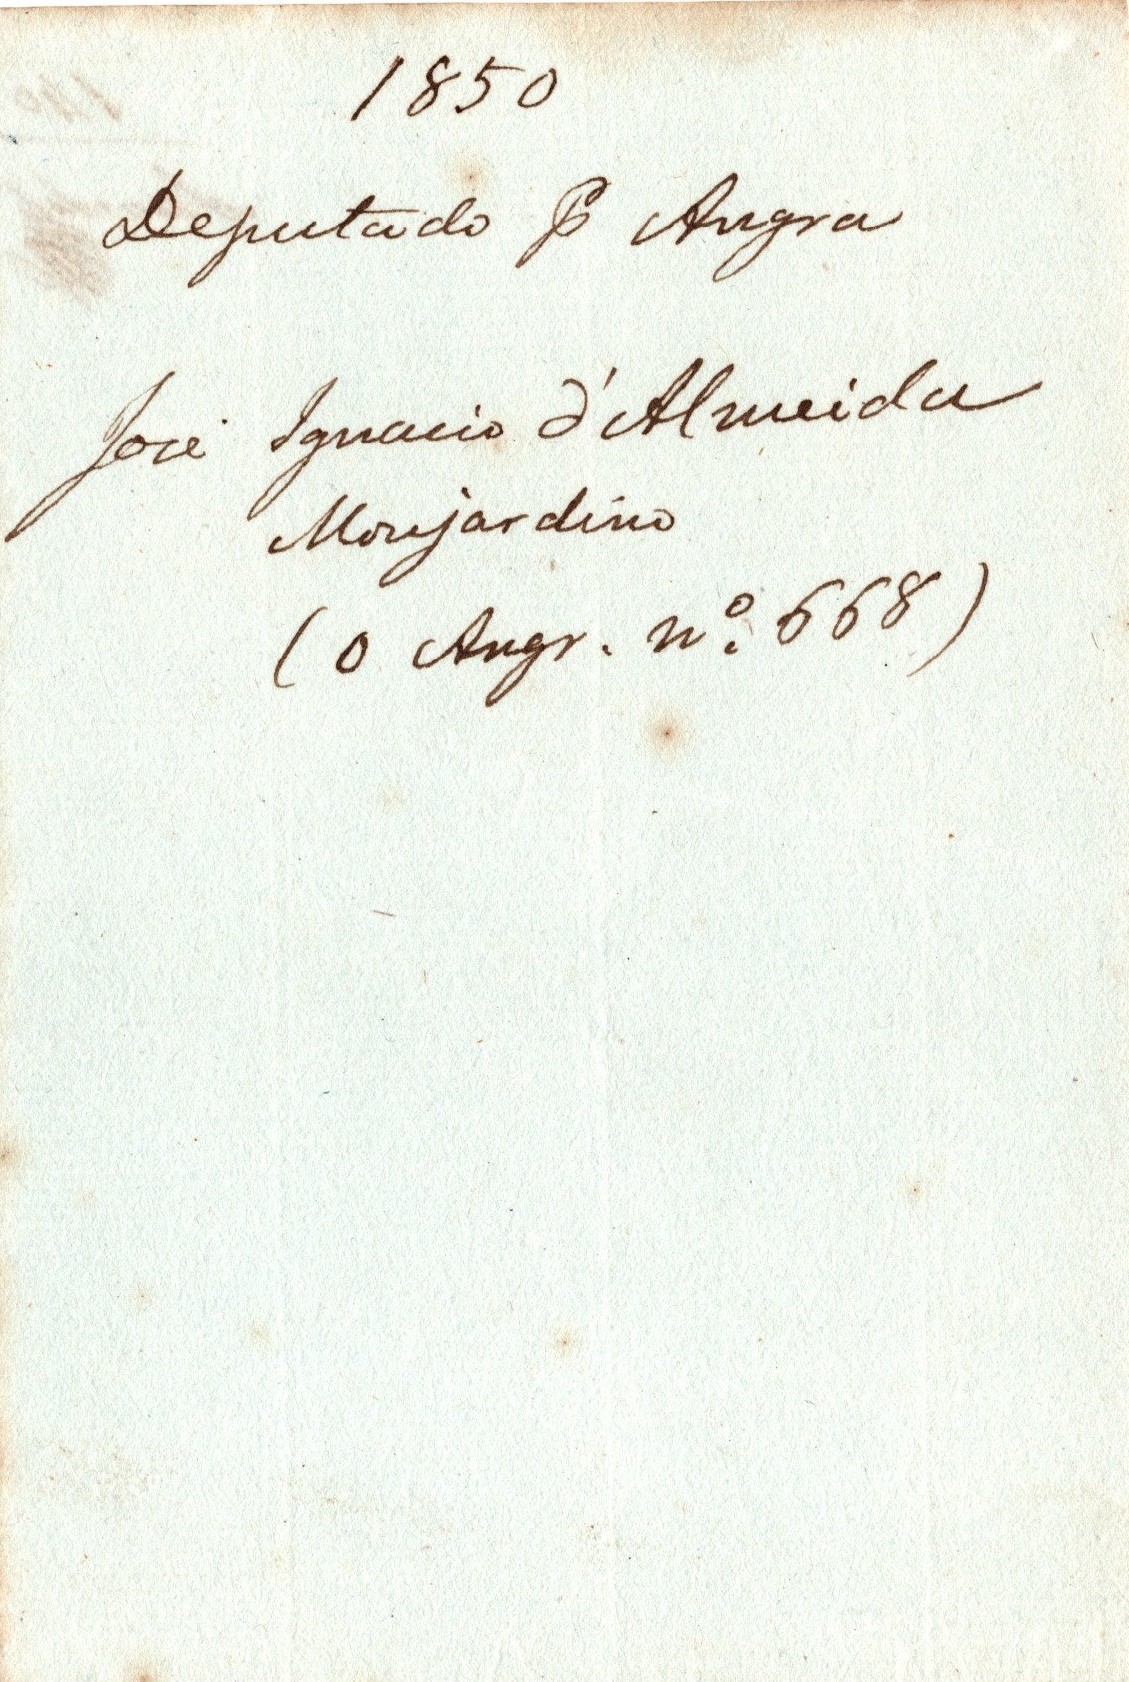 1850
Deputado P Angra
José Ignacio d'Almeida
Monjardino
(O Angr. nº. 668)